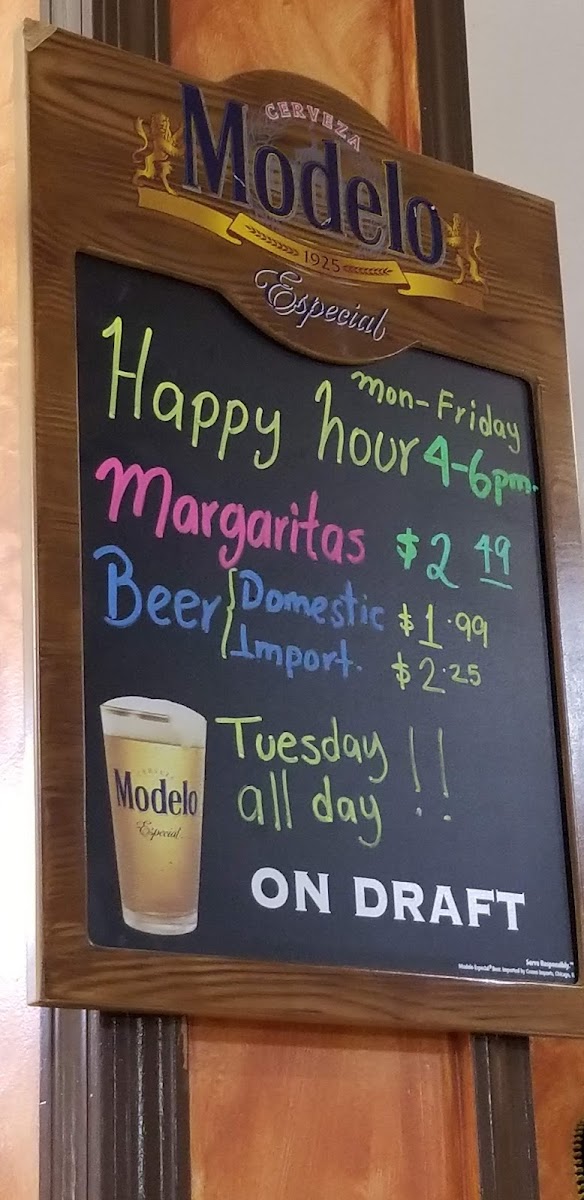 CERVEZA
Modelo
1925
Especial
Happy hour Mon-Friday 4-6pm.
Margaritas $2 49
Beer { Domestic $1.99
Import. $2.25
Tuesday !!
all day
CERVEZA
Modelo
Especial
ON DRAFT
Serve Responsibly.™
Modelo Especial® Beer. Imported by Crown Imports, Chicago, IL